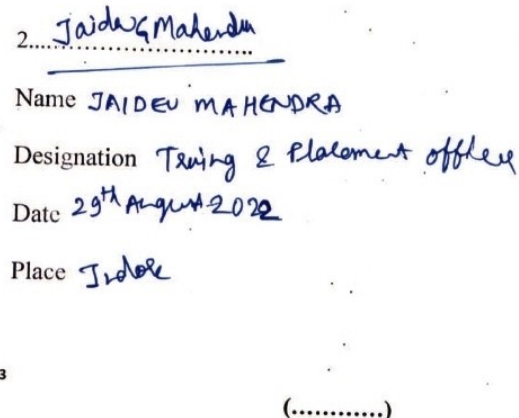 2. Jaidev Mahendra
Name JAIDEV MAHENDRA
Designation Traing & Placement officer
Date 29th August 2022
Place Indore
3
(............)